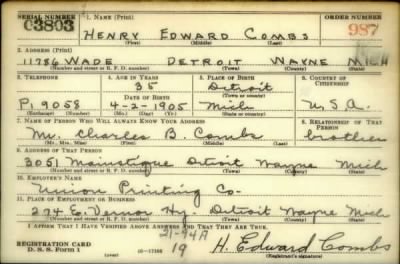 SERIAL NUMBER 1. NAME (Print) ORDER NUMBER
C3803 HENRY EDWARD COMBS 987
(First) (Middle) (Last)
2. ADDRESS (Print)
11786 WADE DETROIT WAYNE MICH
(Number and street or R. F. D. number) (Town) (County) (State)
3. TELEPHONE 4. AGE IN YEARS 5. PLACE OF BIRTH 6. COUNTRY OF CITIZENSHIP
35 Detroit
DATE OF BIRTH (Town or county)
Pl 9058 4-2-1905 Mich U.S.A.
(Exchange) (Number) (Mo.) (Day) (Yr.) (State or country)
7. NAME OF PERSON WHO WILL ALWAYS KNOW YOUR ADDRESS 8. RELATIONSHIP OF THAT PERSON
Mr. Charles B. Combs brother
(Mr., Mrs., Miss) (First) (Middle) (Last)
9. ADDRESS OF THAT PERSON
3051 Manistique Detroit Wayne Mich
(Number and street or R. F. D. number) (Town) (County) (State)
10. EMPLOYER'S NAME
Union Printing Co.
11. PLACE OF EMPLOYMENT OR BUSINESS
274 E. Vernor Hy. Detroit Wayne Mich
(Number and street or R. F. D. number) (Town) (County) (State)
I AFFIRM THAT I HAVE VERIFIED ABOVE ANSWERS AND THAT THEY ARE TRUE.
21-94A
REGISTRATION CARD 19 H. Edward Combs
D. S. S. Form 1 (over) 16-17105 (Registrant's signature)